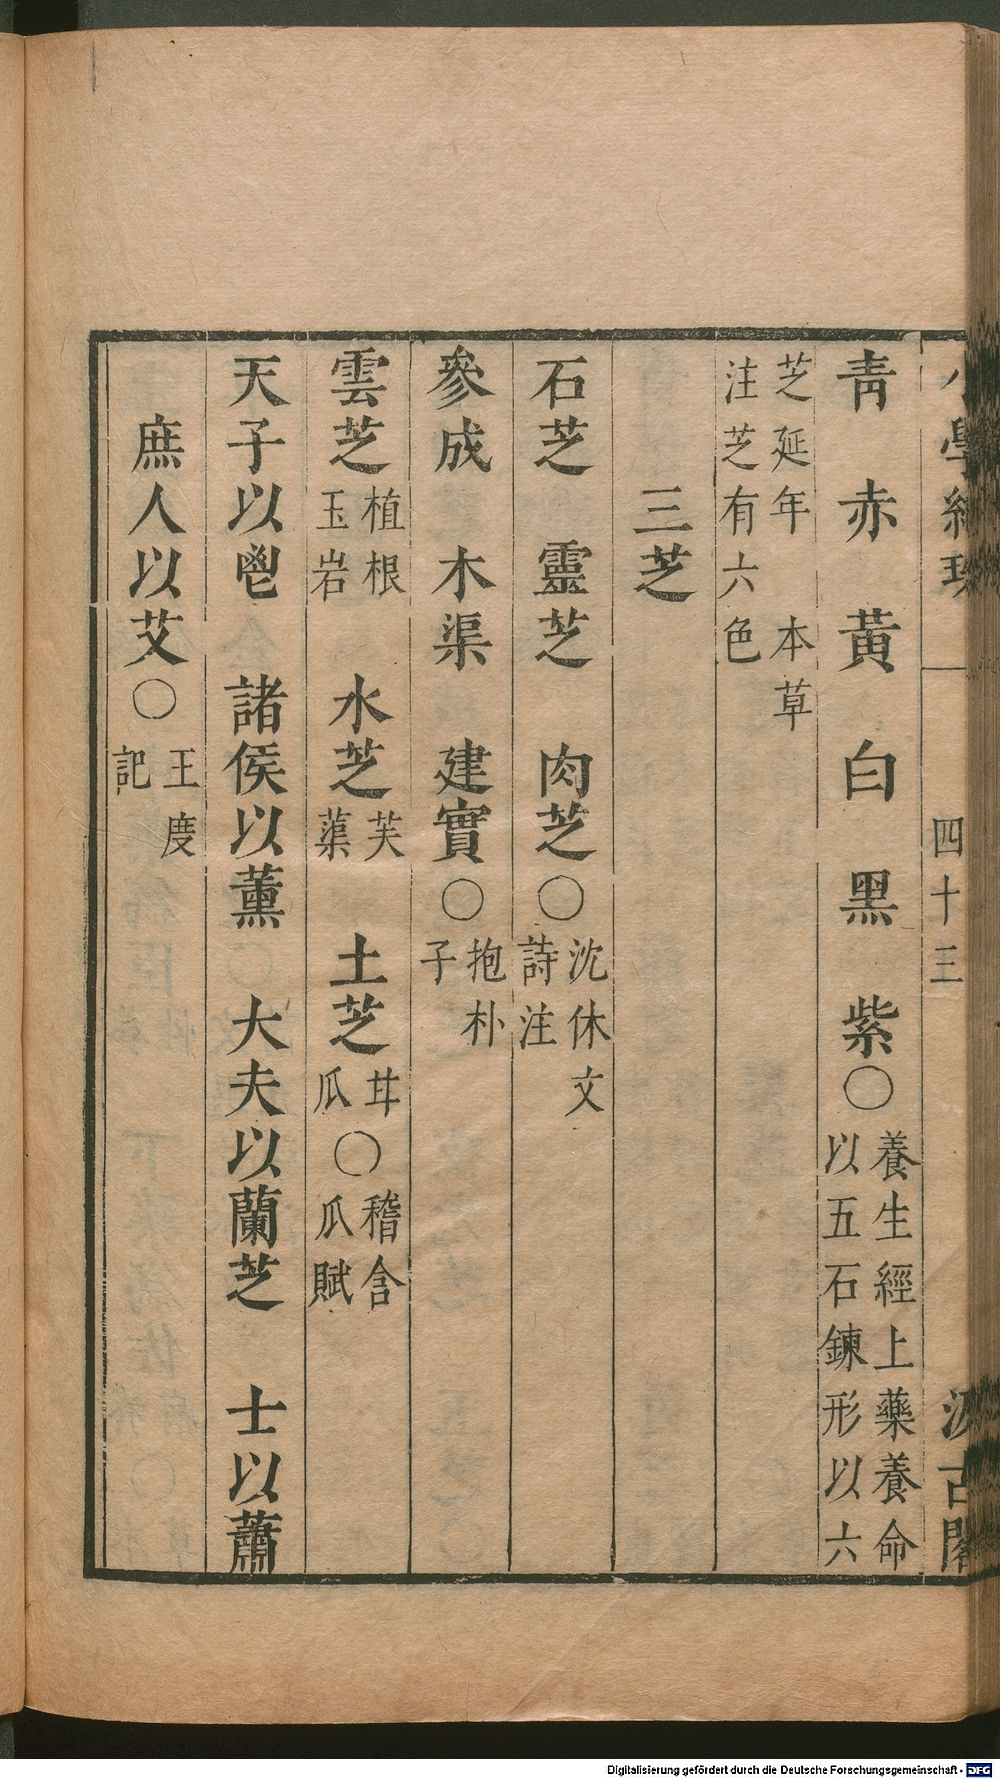 小學紺珠 四十三 汲古閣
青 赤 黃 白 黑 紫〇養生經上藥養命以五石鍊形以六
芝延年 本草注芝有六色
三芝
石芝 靈芝 肉芝〇沈休文詩注
參成 木渠 建實〇抱朴子
雲芝植根玉岩 水芝芙蕖 土芝甘瓜〇稽含瓜賦
天子以鬯 諸侯以薰 大夫以蘭芝 士以蕭
庶人以艾〇王度記
Digitalisierung gefördert durch die Deutsche Forschungsgemeinschaft - DFG